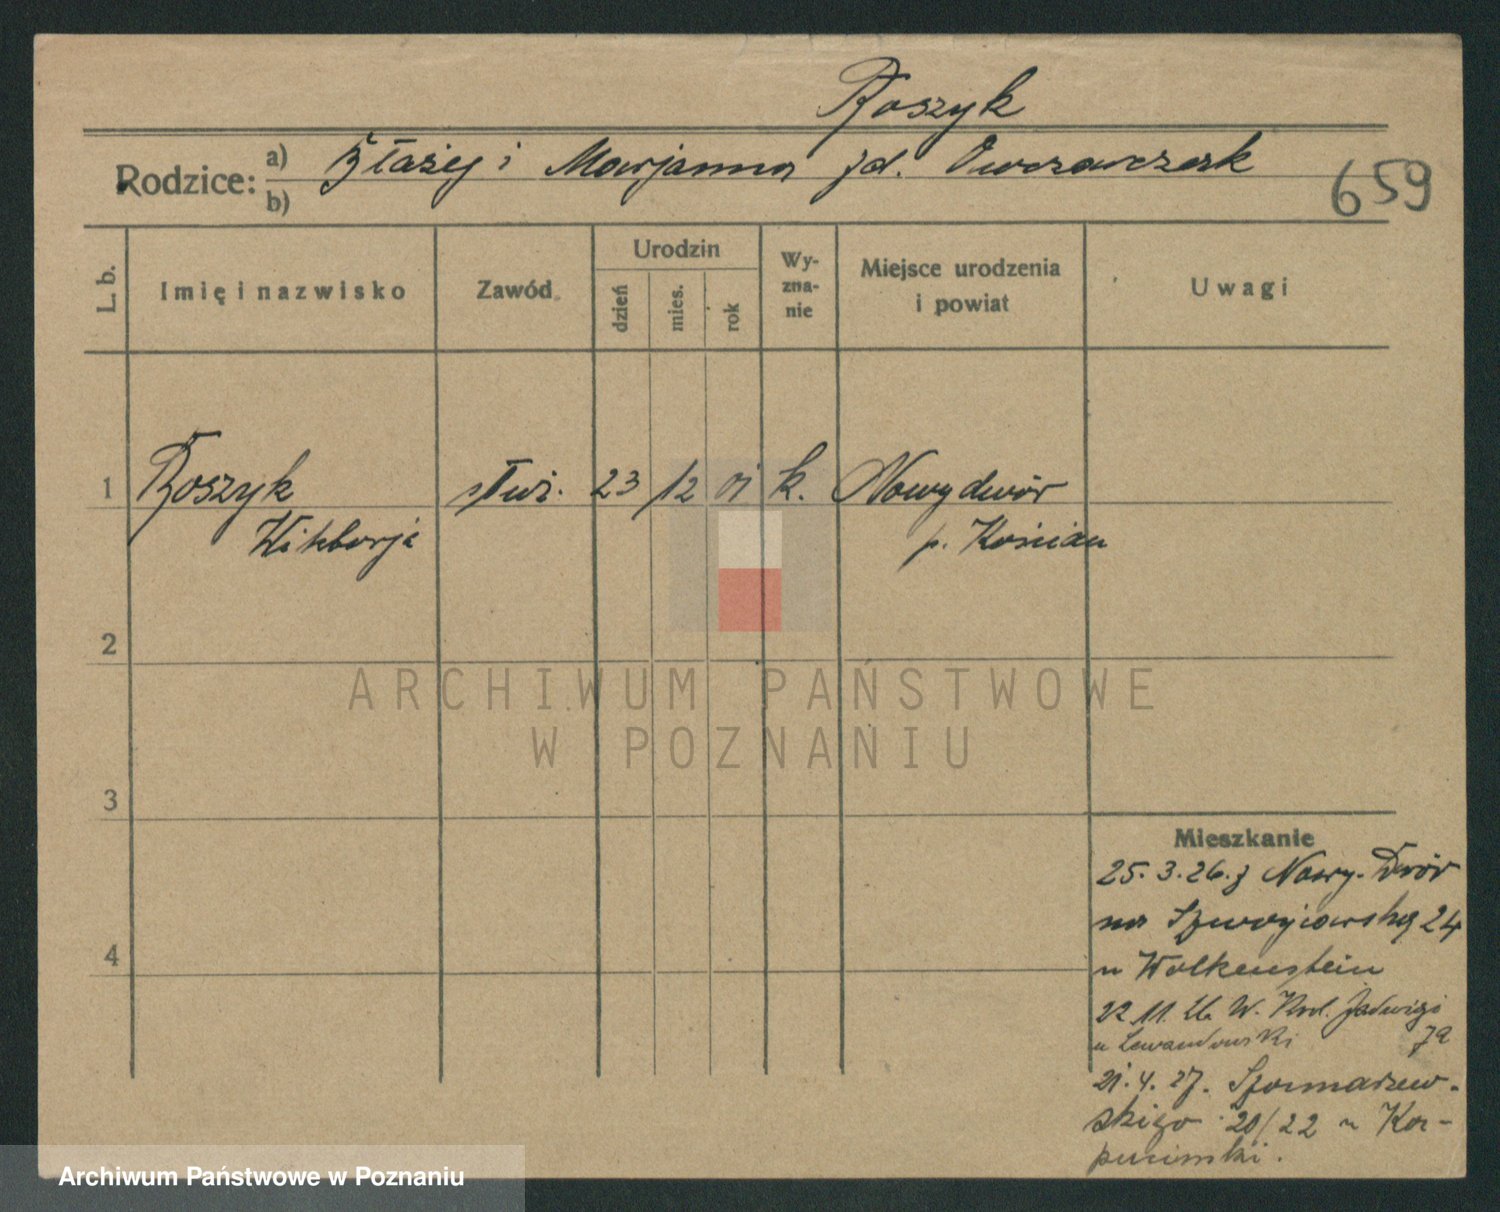 Roszyk
Rodzice: a) Błażej i Marjanna zd. Owczarczak
b)
659
L. b.
Imię i nazwisko
Zawód
Urodzin
dzień
mies.
rok
Wy-
zna-
nie
Miejsce urodzenia
i powiat
Uwagi
1 Roszyk służ. 23 12 01 k. Nowydwór
Wiktorja p. Kościan
2
3
4
ARCHIWUM PAŃSTWOWE
W POZNANIU
Mieszkanie
25.3.26. z Nowy-Dwór
na 24
u Wolkenstein
22 11. 26 W. Król. Jadwigi
u Lewandowski 7a
21.4.27. Szamarzew-
skiego 20/22 u
Archiwum Państwowe w Poznaniu